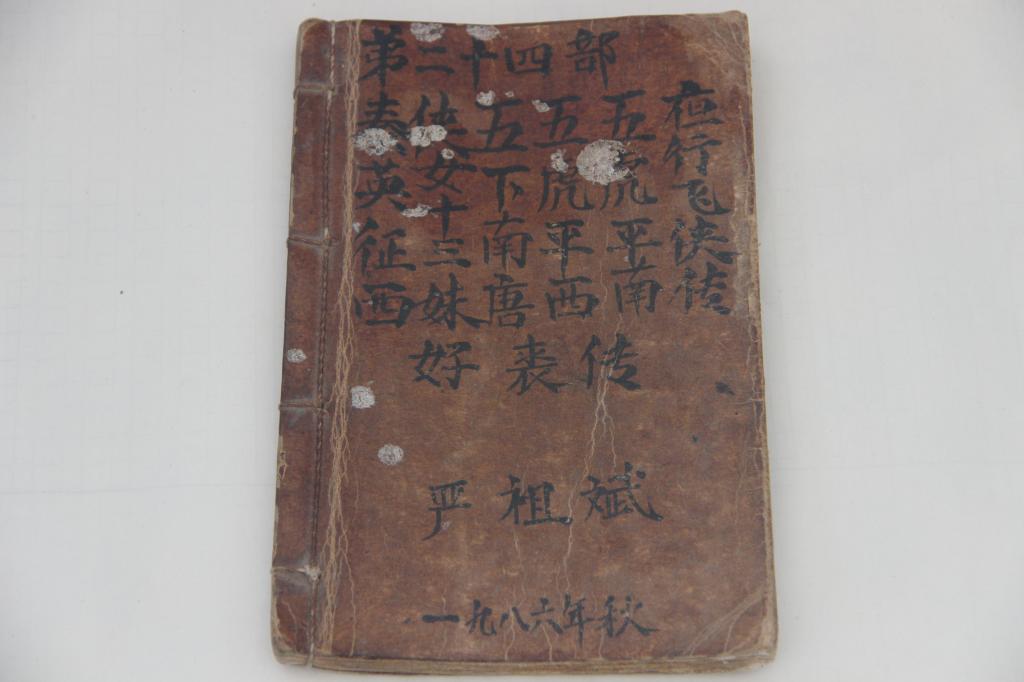 第二十四部
夜行飞侠传
五虎平南
五虎平西
五下南唐
侠女十三妹
秦英征西
好裘传
严祖斌
一九八六年秋